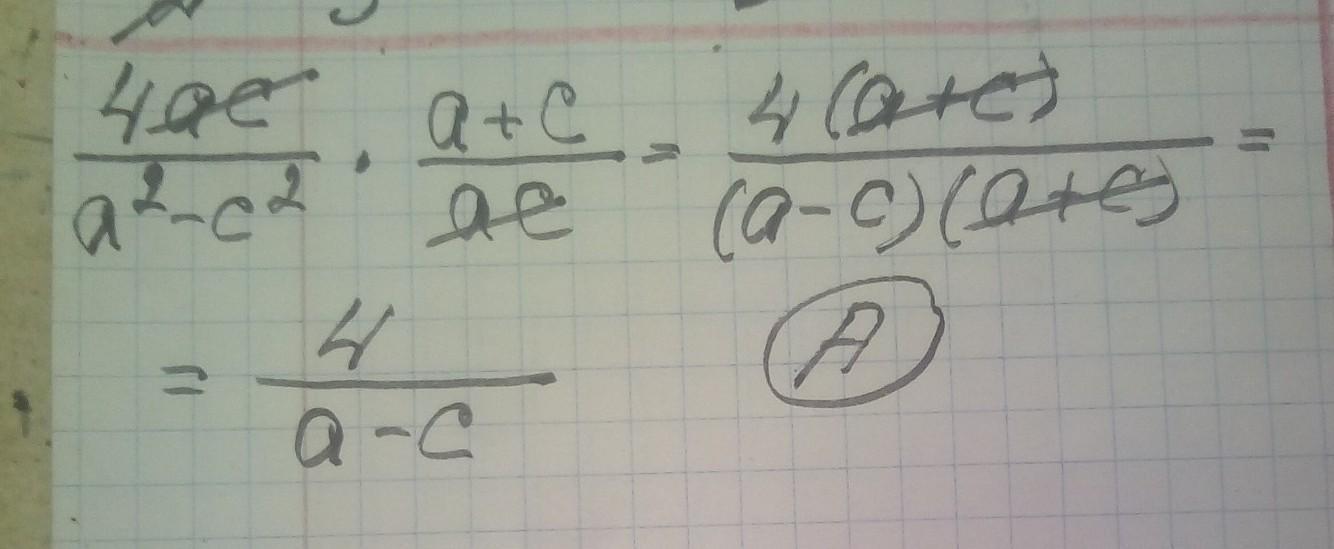 4ac/(a²-c²) · (a+c)/(ac) = 4(a+c)/((a-c)(a+c)) =
= 4/(a-c) A